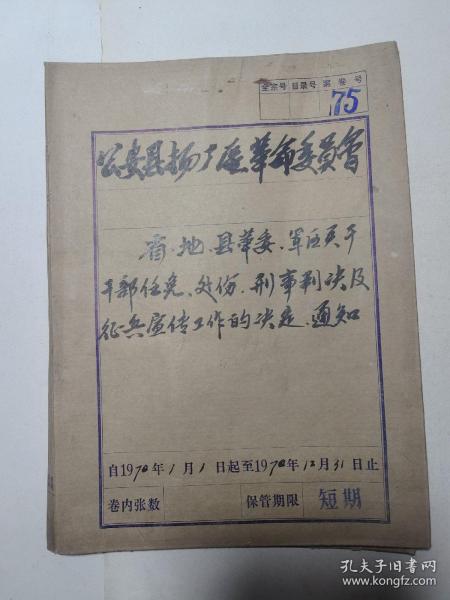 全宗号 目录号 案卷号
75
公安县杨厂区革命委员会
省、地、县革委、军区关于
干部任免、处份、刑事判决及
征兵宣传工作的决定、通知
自1970年1月1日起至1970年12月31日止
卷内张数 保管期限 短期
孔夫子旧书网
www.kongfz.com